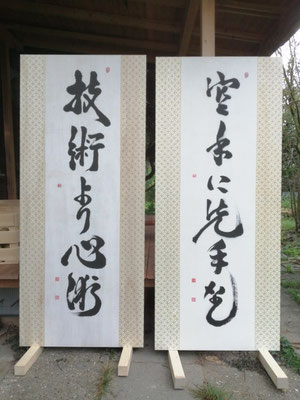 空手に先手なし
技術より心術